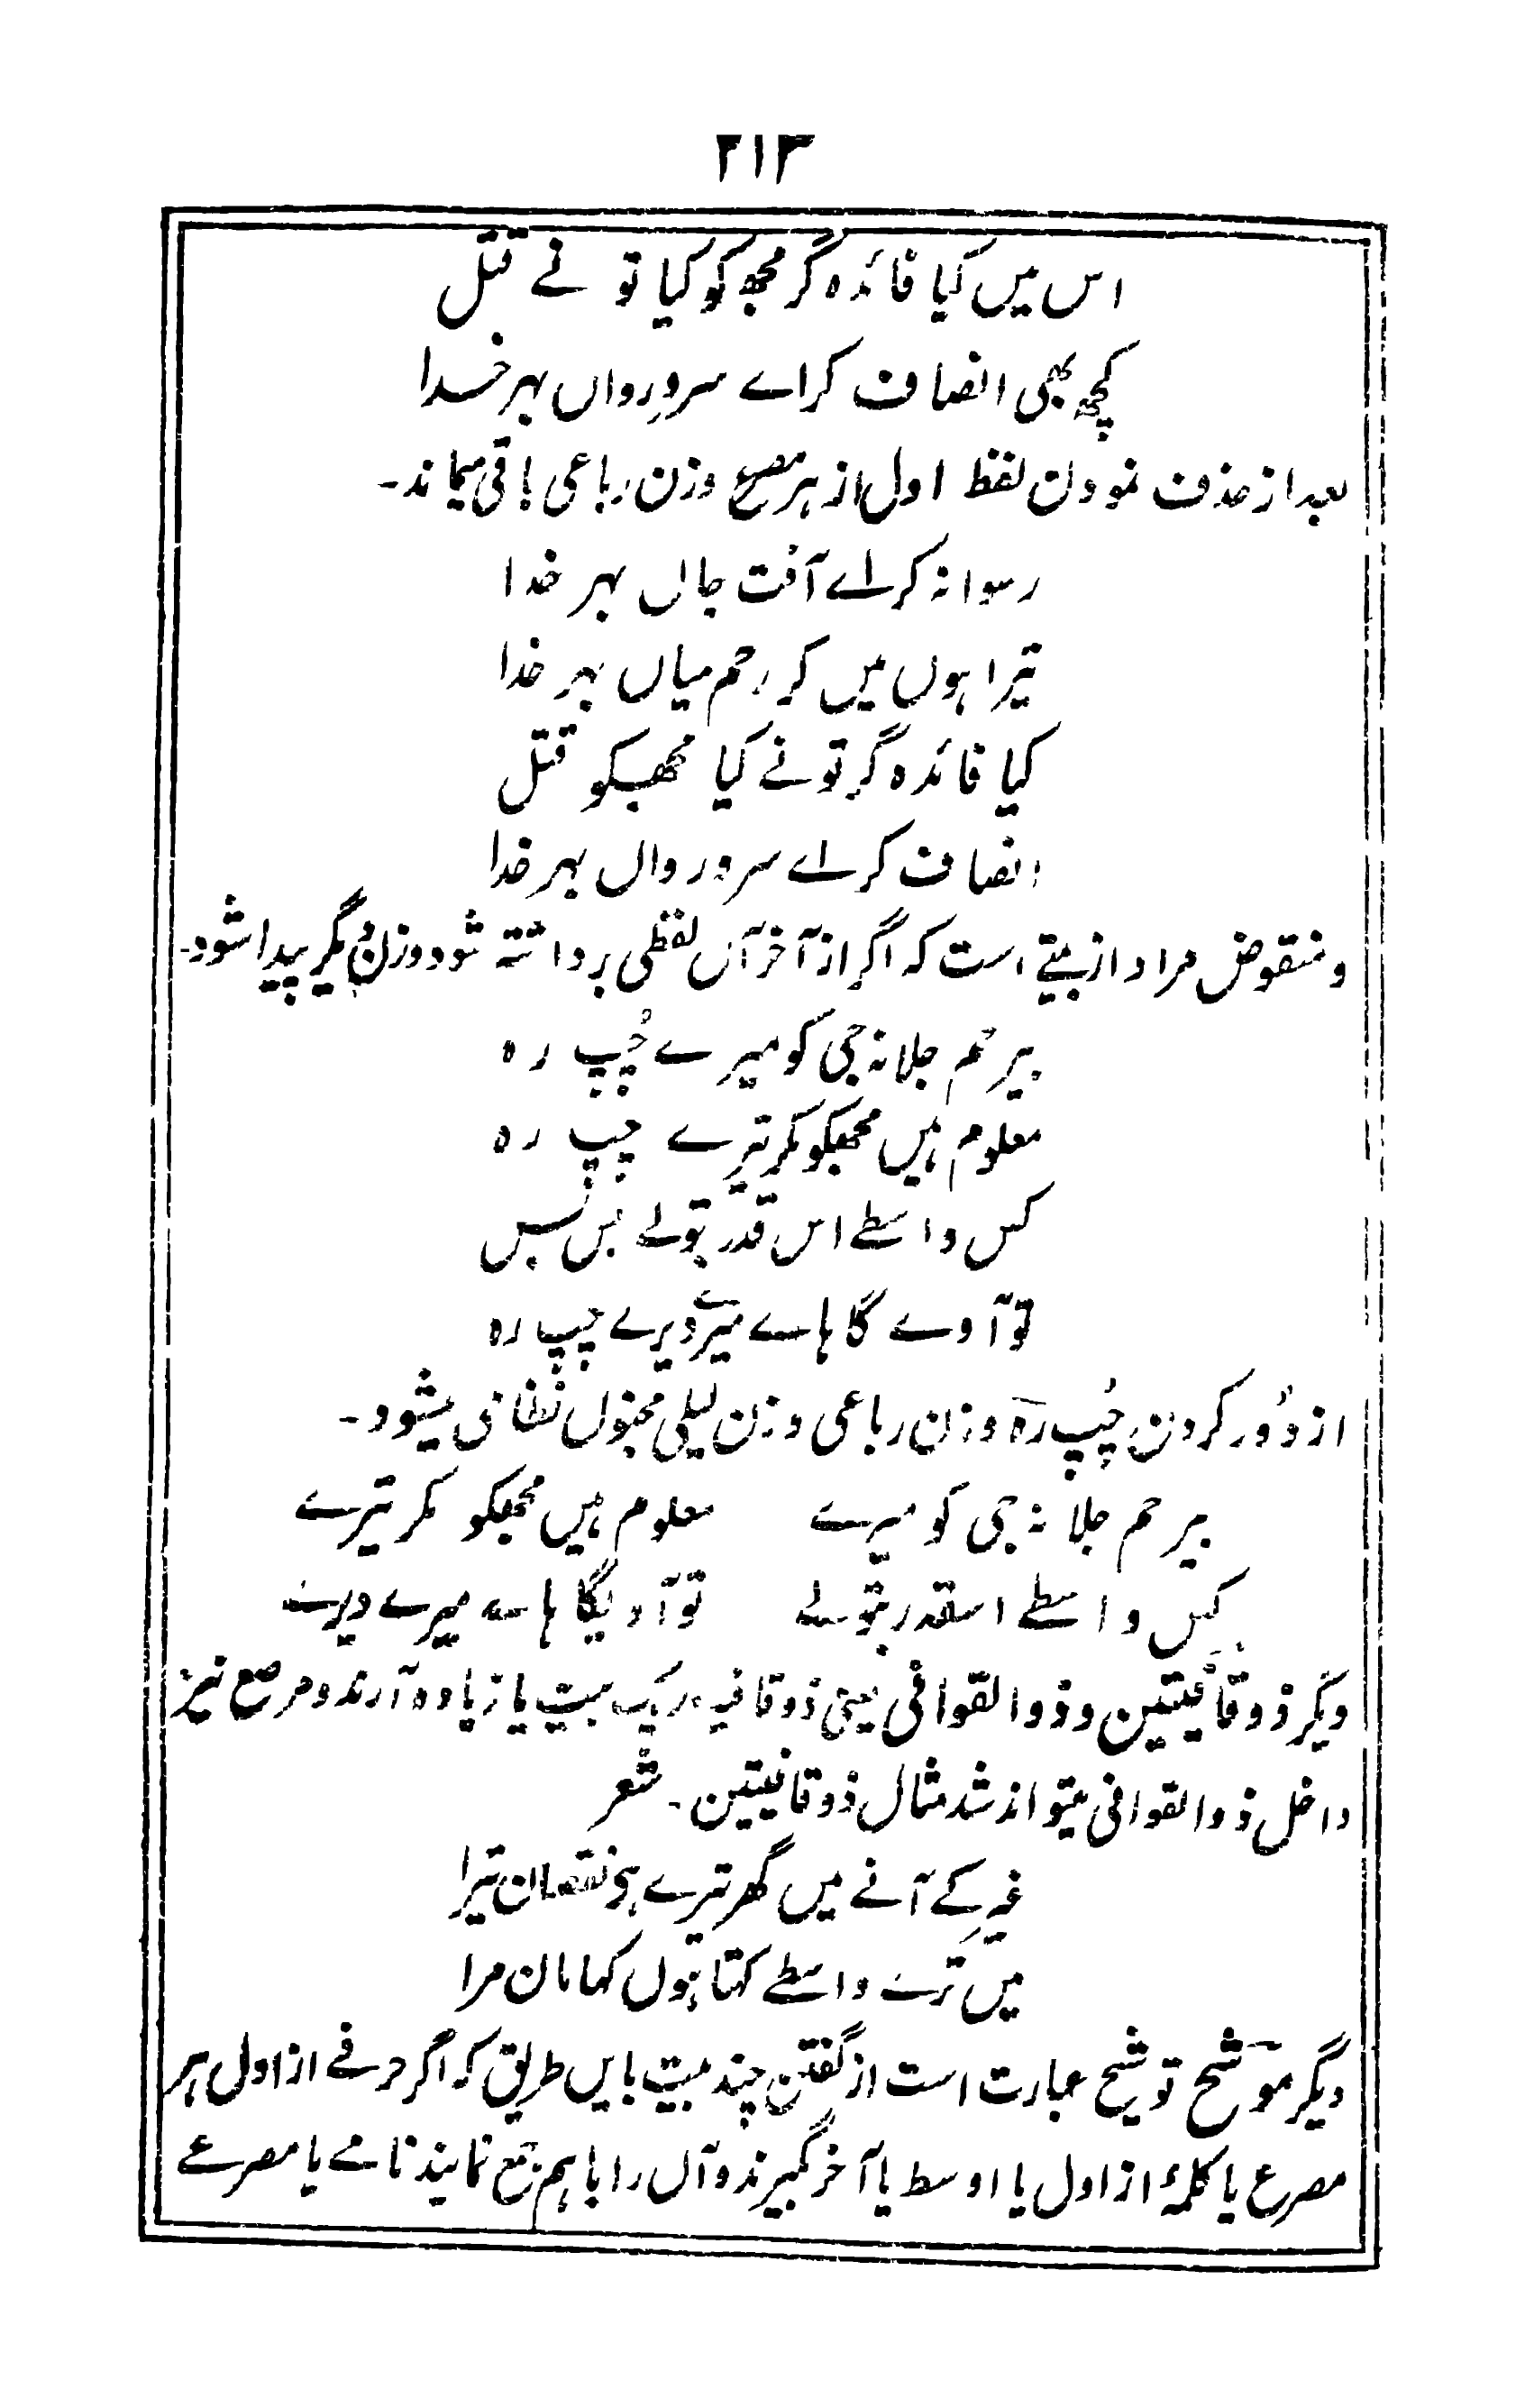 ۲۱۳
اس میں کیا فائدہ گر مجھ کو کیا تو نے قتل
کچھ بھی انصاف کر اے سروِ رواں بہرِ خدا
بعد از حذف نمودن لفظ اول از ہر مصرع وزن رباعی باقی میماند۔
رسوا نہ کر اے آفت جاں بہر خدا
تیرا ہوں میں کر رحم میاں بہر خدا
کیا فائدہ گر تو نے کیا مجھکو قتل
انصاف کر اے سرو رواں بہر خدا
و منقوض مراد از بیتے است کہ اگر از آخر آں لفظی برداشتہ شود وزن دیگر پیدا شود۔
بیرحم جلا نہ جی کو میرے چُپ رہ
معلوم ہیں مجھکو مکر تیرے چپ رہ
کس واسطے اس قدر تو لے بس بس
تو آوے گا ہاے میرے ڈیرے چپ رہ
از دُور کردن چُپ رہ وزن رباعی وزن لیلی مجنوں نظامی میشود۔
بیرحم جلا نہ جی کو میرے معلوم ہیں مجھکو مکر تیرے
کس واسطے اسقدر تو لے تو آویگا ہاے میرے ڈیرے
دیگر ذو قافیتین و ذو القوافی یعنی ذو قافیہ در یک بیت یا زیادہ آرند و مرصع نیز
داخل ذو القوافی میتواند شد مثال ذو قافیتین۔ شعر
غیر کے آنے میں گھر تیرے ہی نقصان تیرا
میں ترے واسطے کہتا ہوں کہا مان مرا
دیگر موشح توشیح عبارت است از گفتن چند بیت بایں طریق کہ اگر حرفے از اول ہر
مصرع یا کلمۂ از اول یا اوسط یا آخر گیرند و آں را باہم جمع نمایند نامے یا مصرعے